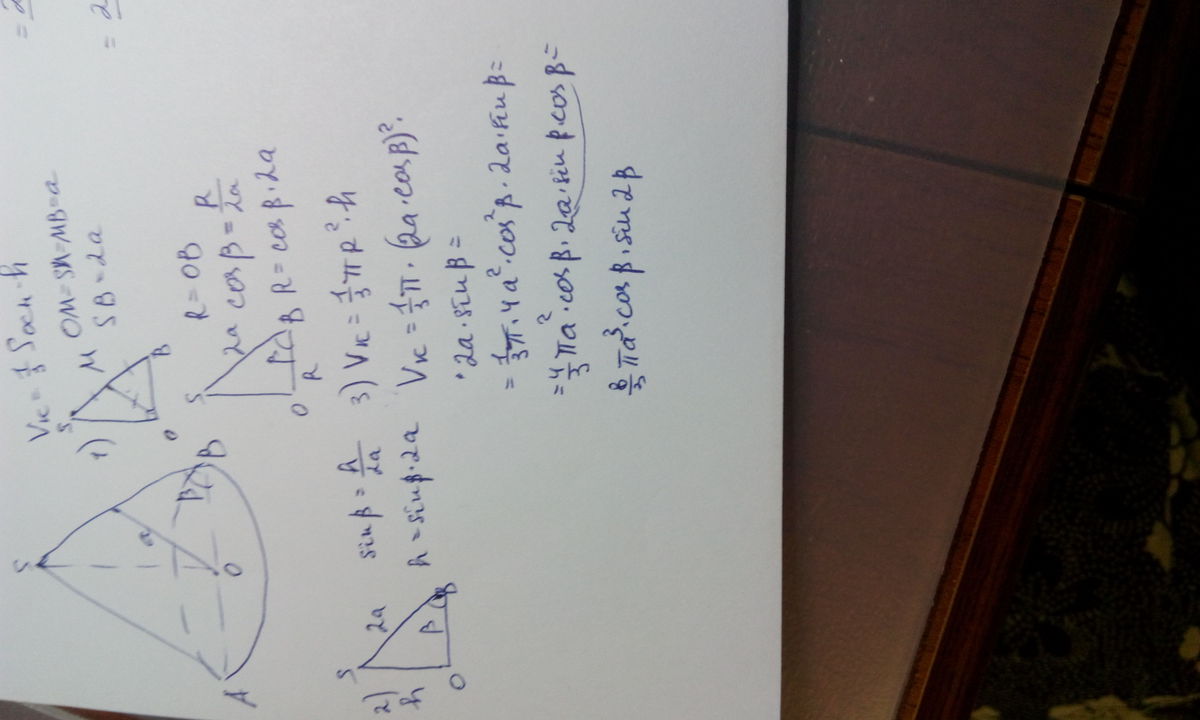 = 2
= 2
Vк = 1/3 Sосн·h
1)
S
M
O
B
OM=SM=MB=a
SB = 2a
S
a
β
O
A
B
S
2a
β
O
R
B
R=OB
cosβ = R/2a
R = cosβ·2a
2)
S
h
2a
β
O
B
sinβ = h/2a
h = sinβ·2a
3) Vк = 1/3 πR²·h
Vк = 1/3 π·(2a·cosβ)²·
·2a·sinβ =
= 1/3 π·4a²·cos²β·2a·sinβ =
= 4/3 πa²·cosβ·2a·sinβ·cosβ =
8/3 πa³·cosβ·sin2β